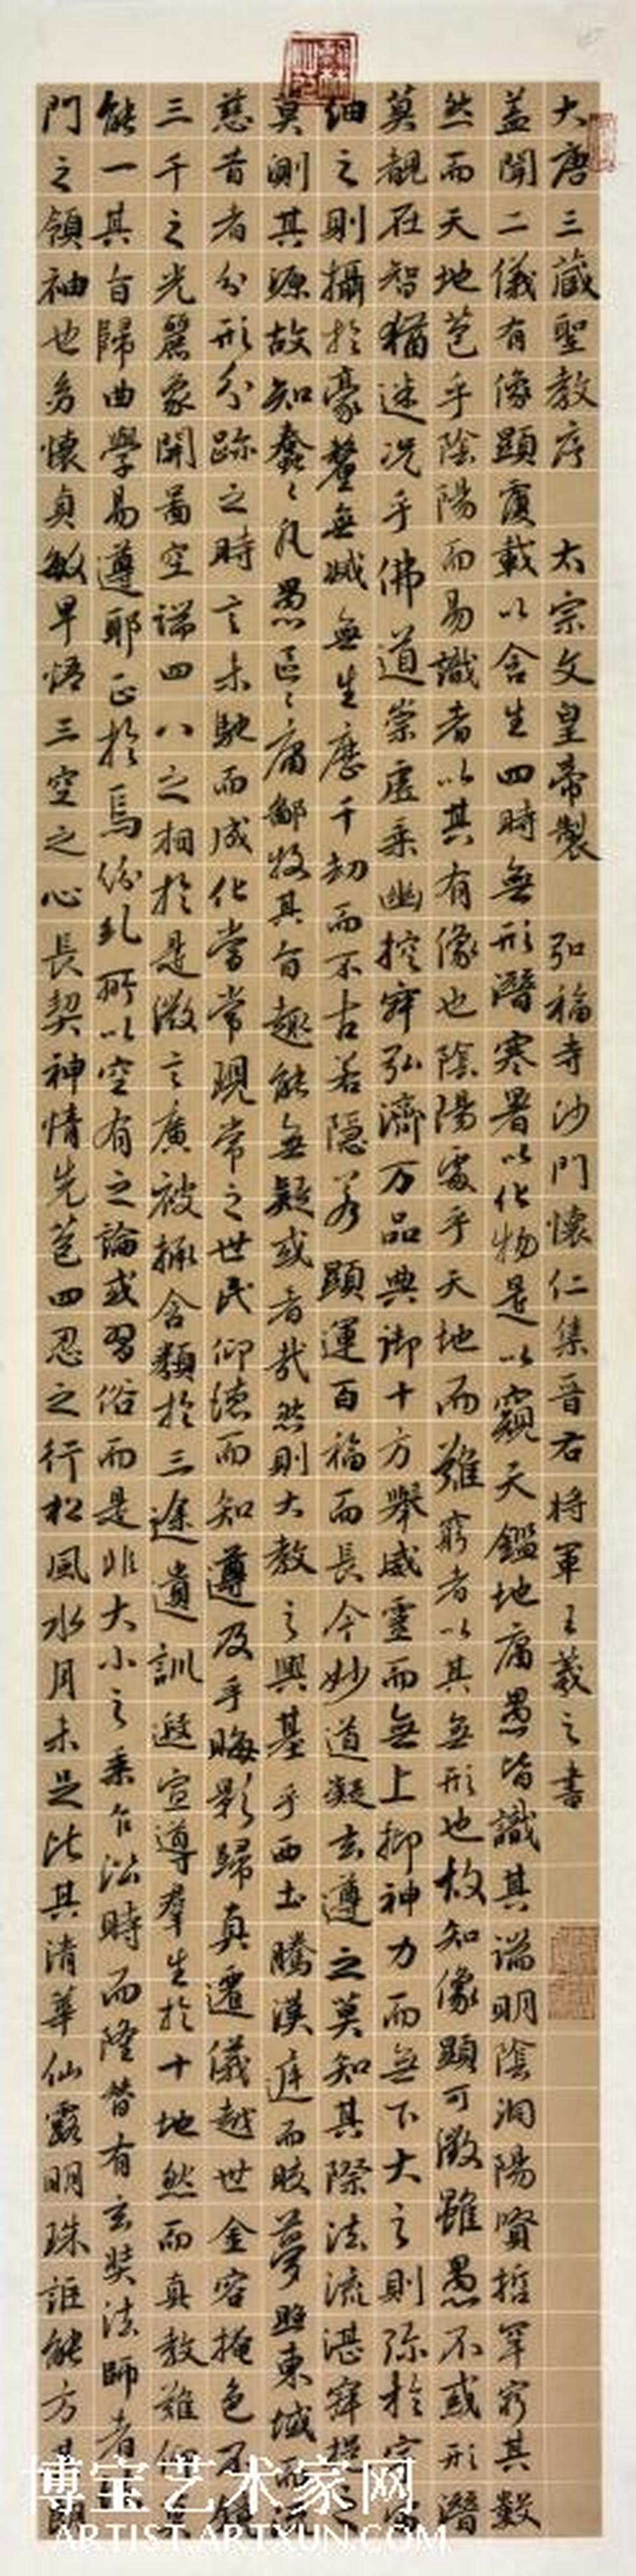 大唐三藏聖教序 太宗文皇帝製 弘福寺沙門懷仁集晉右将軍王羲之書
盖聞二儀有像顯覆載以含生四時無形潛寒暑以化物是以窺天鑑地庸愚皆識其端明陰洞陽賢哲罕窮其數
然而天地苞乎陰陽而易識者以其有像也陰陽處乎天地而難窮者以其無形也故知像顯可徵雖愚不惑形潛
莫覩在智猶迷况乎佛道崇虛乘幽控寂弘濟万品典御十方舉威靈而無上抑神力而無下大之則弥於宇
細之則攝於豪釐無滅無生歷千劫而不古若隱若顯運百福而長今妙道凝玄遵之莫知其際法流湛寂挹之
莫測其源故知蠢々凡愚區々庸鄙投其旨趣能無疑或者哉然則大教之興基乎西土騰漢庭而皎夢照東域而流
慈昔者分形分跡之時言未馳而成化當常現常之世民仰德而知遵及乎晦影歸真遷儀越世金容掩色不鏡
三千之光麗象開啚空端四八之相於是微言廣被拯含類於三途遺訓遐宣導羣生於十地然而真教難仰
能一其旨歸曲學易遵耶正於焉紛乱所以空有之論或習俗而是非大小之乘乍沿時而隆替有玄奘法師者
門之領袖也㓜懷貞敏早悟三空之心長契神情先苞四忍之行松風水月未足比其清華仙露明珠詎能方其朗
博宝艺术家网
ARTIST.ARTXUN.COM